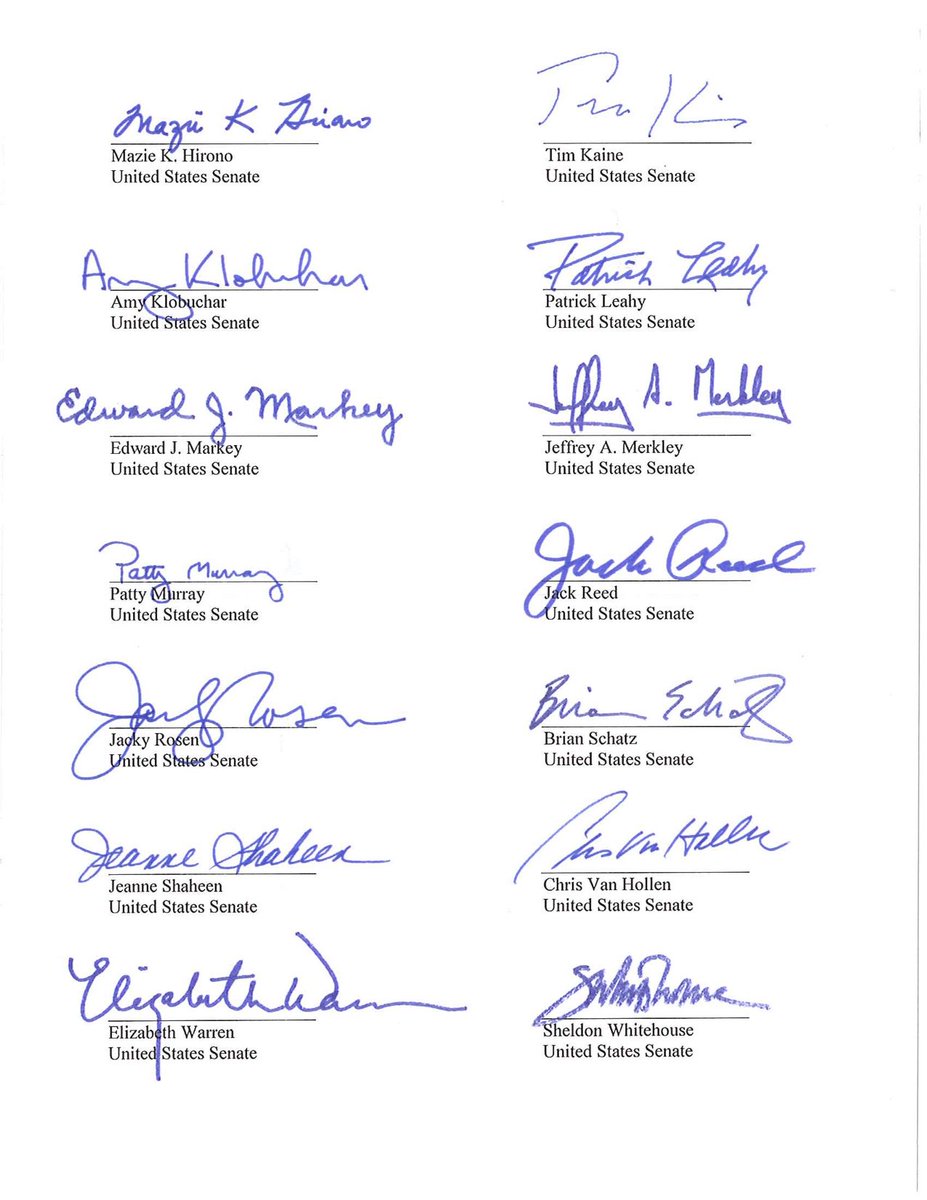 Mazie K Hirono
Mazie K. Hirono
United States Senate
Tim Kaine
Tim Kaine
United States Senate
Amy Klobuchar
Amy Klobuchar
United States Senate
Patrick Leahy
Patrick Leahy
United States Senate
Edward J. Markey
Edward J. Markey
United States Senate
Jeffrey A. Merkley
Jeffrey A. Merkley
United States Senate
Patty Murray
Patty Murray
United States Senate
Jack Reed
Jack Reed
United States Senate
Jacky Rosen
Jacky Rosen
United States Senate
Brian Schatz
Brian Schatz
United States Senate
Jeanne Shaheen
Jeanne Shaheen
United States Senate
Chris Van Hollen
Chris Van Hollen
United States Senate
Elizabeth Warren
Elizabeth Warren
United States Senate
Sheldon Whitehouse
United States Senate